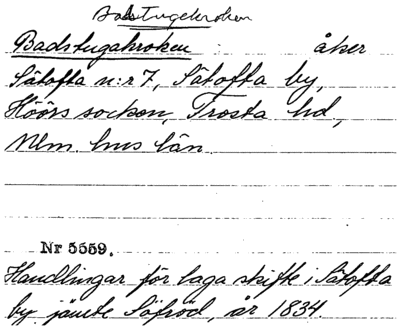 Badstugekroken
Badstugakroken : åker
Sätofta n:r 7, Sätofta by,
Höörs socken, Frosta hd,
Mlm. hus län.
Nr 5559.
Handlingar för laga skifte i Sätofta
by jämte Söfröd, år 1834.